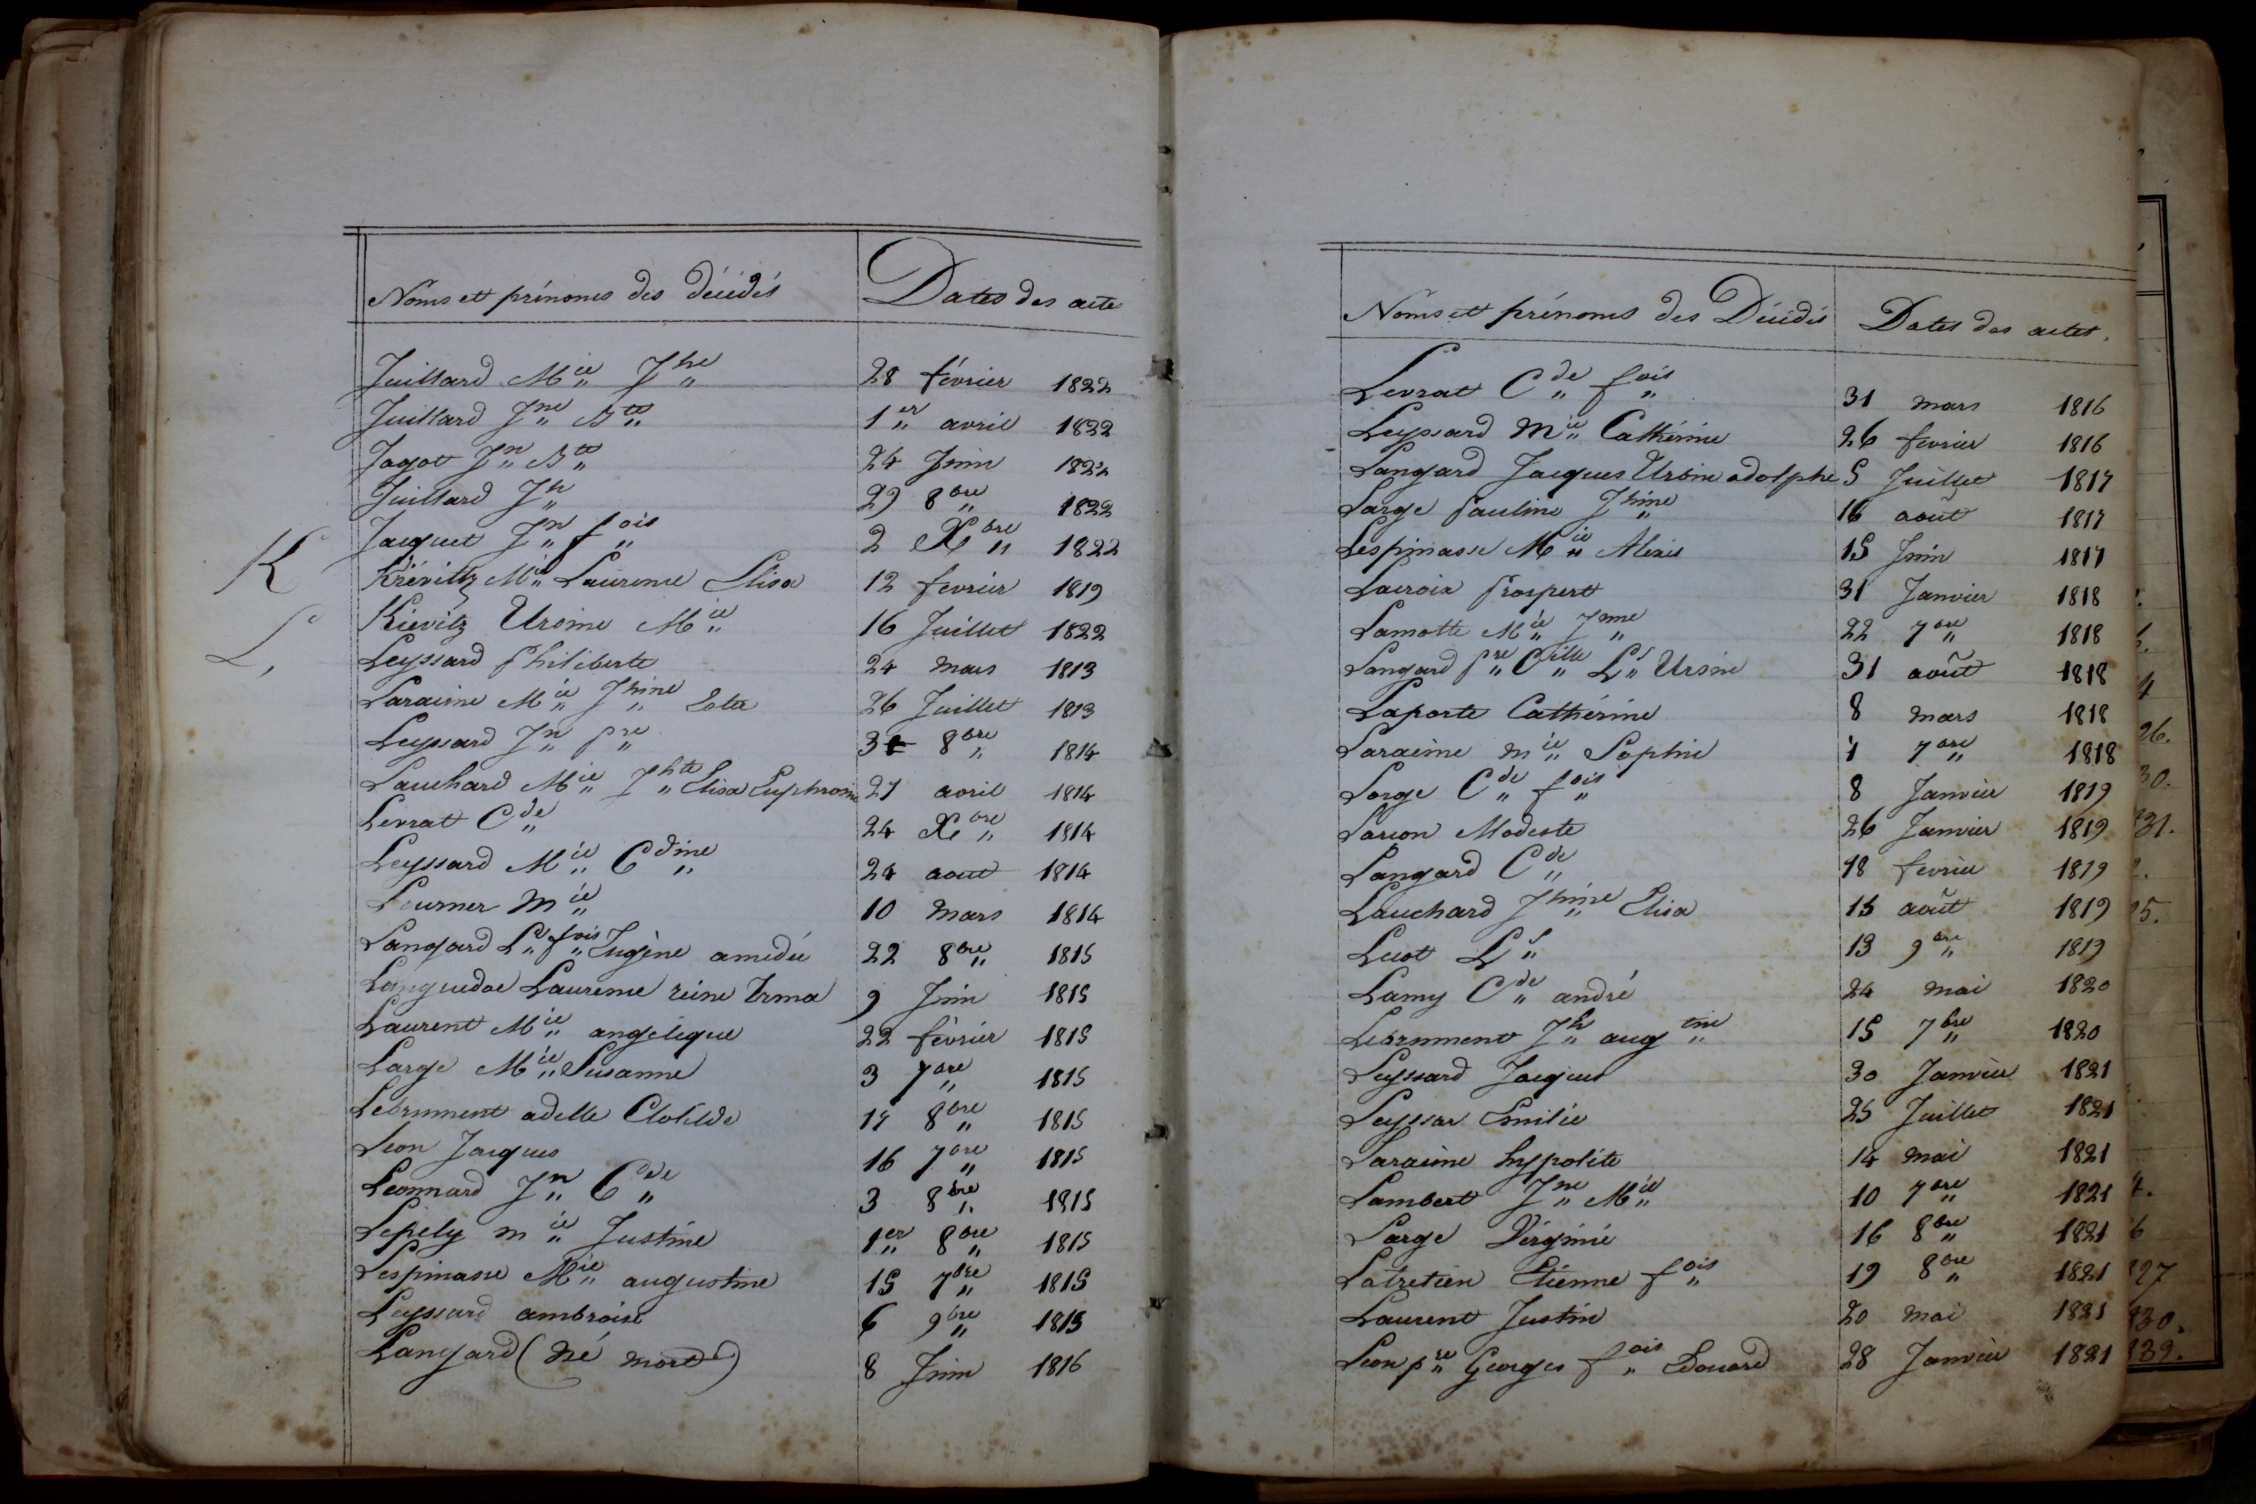 Noms et prénoms des décédés Dates des acte
Juillard M.ie J.he 28 février 1822
Juillard J.ne B.te 1.er avril 1822
Jagot J.n B.te 24 Juin 1822
Juillard J.h 29 8.bre 1822
Jacquet J.n f.ois 2 X.bre 1822
K
Kiévitz M.ie Laurence Elisa 12 fevrier 1819
Kievitz Ursine M.ie 16 Juillet 1822
L
Leyssard Philiberte 24 mars 1813
Laraime M.ie J.hine 26 Juillet 1813
Leyssard J.n P.re 3 8.bre 1814
Lauchard M.ie J.hte Elisa Euphrosine 27 avril 1814
Levrat C.de 24 X.bre 1814
Leyssard M.ie C.dine 24 aout 1814
M.ie 10 mars 1814
Langard L.s f.ois Eugène amédée 22 8.bre 1815
Languedoc Laurence reine Irma 9 Juin 1815
Laurent M.ie angélique 22 février 1815
Large M.ie Susanne 3 7.bre 1815
Lebrument adelle Clotilde 17 8.bre 1815
Leon Jacques 16 7.bre 1815
Leonnard J.n C.de 3 8.bre 1815
Lepely m.ie Justine 1.er 8.bre 1815
Lespinasse M.ie augustine 15 7.bre 1815
Leyssard ambroise 6 9.bre 1815
Langard (né mort) 8 Juin 1816
Noms et prénoms des Décédés Dates des actes.
Levrat C.de f.ois 31 mars 1816
Leyssard M.ie Catherine 26 fevrier 1816
Langard Jacques Ursin adolphe 5 Juillet 1817
Large Pauline J.hine 16 août 1817
Lespinasse M.ie Alexis 15 Juin 1817
Lacroix Prospert 31 Janvier 1818
Lamotte M.ie J.nne 22 7.bre 1818
Langard P.re C.ille L.s Ursin 31 août 1818
Laporte Catherine 8 mars 1818
Laraime m.ie Sophie 1 7.bre 1818
Large C.de f.ois 8 Janvier 1819
Larion Modeste 26 Janvier 1819
Langard C.de 18 fevrier 1819
Lauchard J.hine Elisa 15 août 1819
L.s 13 9.bre 1819
Lamy C.de andré 24 mai 1820
Lebrument J.h aug.tin 15 7.bre 1820
Leyssard Jacques 30 Janvier 1821
Leyssar Emilie 25 Juillet 1821
Laraime hyppolite 14 mai 1821
Lambert J.ne M.ie 10 7.bre 1821
Large Virginie 16 8.bre 1821
Latretien Etienne f.ois 19 8.bre 1821
Laurent Justin 20 mai 1821
Leon p.re Georges f.ois Edouard 28 Janvier 1821